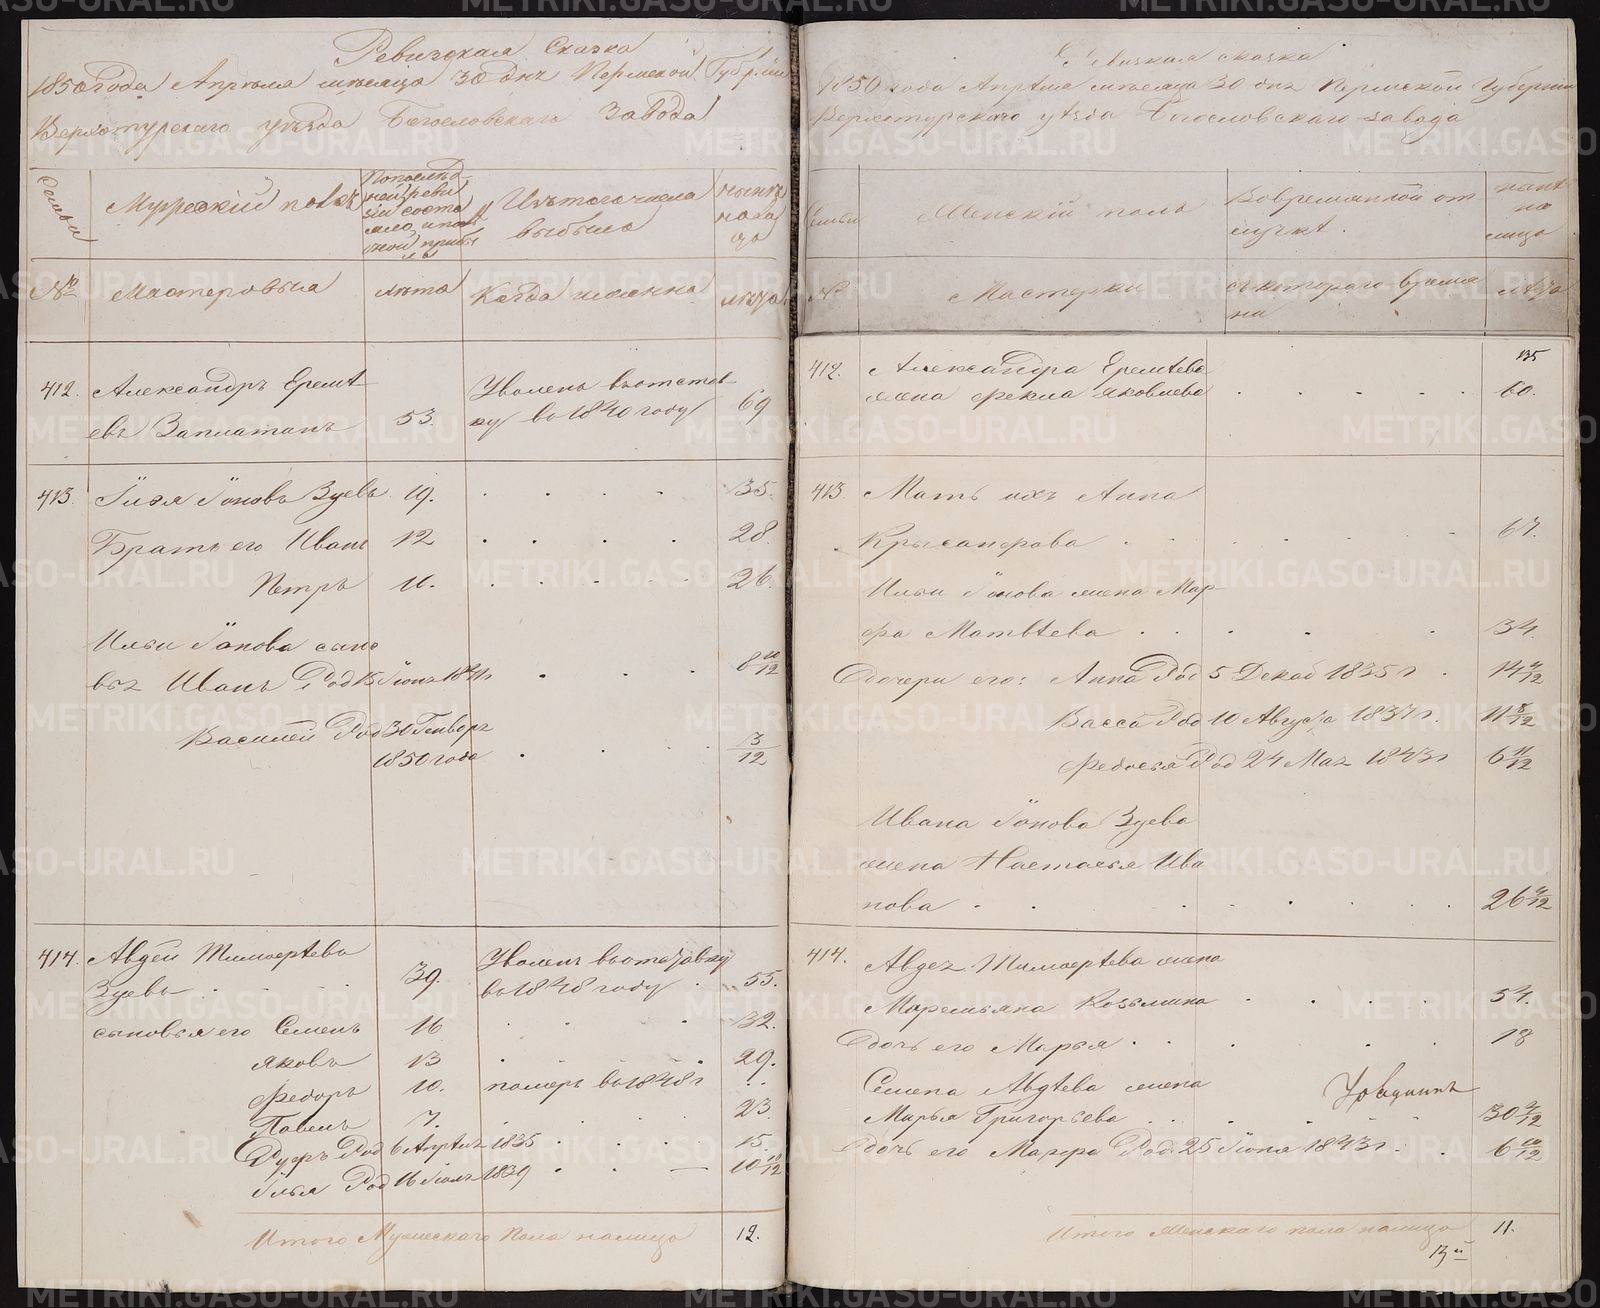 Ревизская Сказка
1850 года Апреля месяца 30 дня Пермской Губернии
Верхотурскаго уезда Богословскаго завода
Семьи
Мужеский полъ
По последней ревизии состояло и после оной прибыло
Изъ того числа выбыло
ныне на лицо
№
Мастеровыя
лета
Когда именно
лета
412. Александръ Ереме-
евъ Заплатинъ 53. Уволенъ въ отстав-
ку въ 1840 году 69
413. Илья Iоновъ Зуевъ 19. 35.
Братья его Иванъ 12 28.
Петръ 10. 26.
Ильи Iонова сыно
вья Иванъ Род 15 Iюня 1841 г 8 10/12
Василий Род 30 Генваря
1850 года 3/12
414. Авдей Тимофеевъ
Зуевъ 39. Уволенъ въ отставку
въ 1848 году 55.
сыновья его Семенъ 16 32.
Яковъ 13 29.
Федоръ 10. померъ въ 1848 г ..
Павелъ 7. 23
Руфъ Род 6 Апреля 1835 15.
Илья Род 16 Iюля 1839 10 10/12
Итого Мужескаго Пола налицо 12.
Ревизская сказка
1850 года Апреля месяца 30 дня Пермской Губернии
Верхотурскаго уезда Богословскаго завода
Семьи
Женский полъ
Во временной от
лучке.
ныне
на
лицо
№
Мастерки
съ котораго време
ни
лета
135
412. Александра Еремеева
жена Фекла Яковлева 60.
413 Мать ихъ Анна
Крысанфова 67.
Ильи Iонова жена Мар-
фа Матвеева 34.
Дочери его: Анна Род 5 Декаб 1835 г. 14 4/12
Васса Род 10 Августа 1837 г. 11 8/12
Федосья Род 24 Мая 1843 г 6 11/12
Ивана Iонова Зуева
жена Настасья Ива
нова 26 4/12
414. Авдея Тимофеева жена
Маремьяна Козьмина 54.
Дочь его Марья 18
Семена Авдеева жена
Марья Григорьева 30 2/12
Дочь его Марфа Род. 25 Iюня 1843 г. 6 10/12
Итого Женскаго пола налицо 11.
METRIKI.GASO-URAL.RU